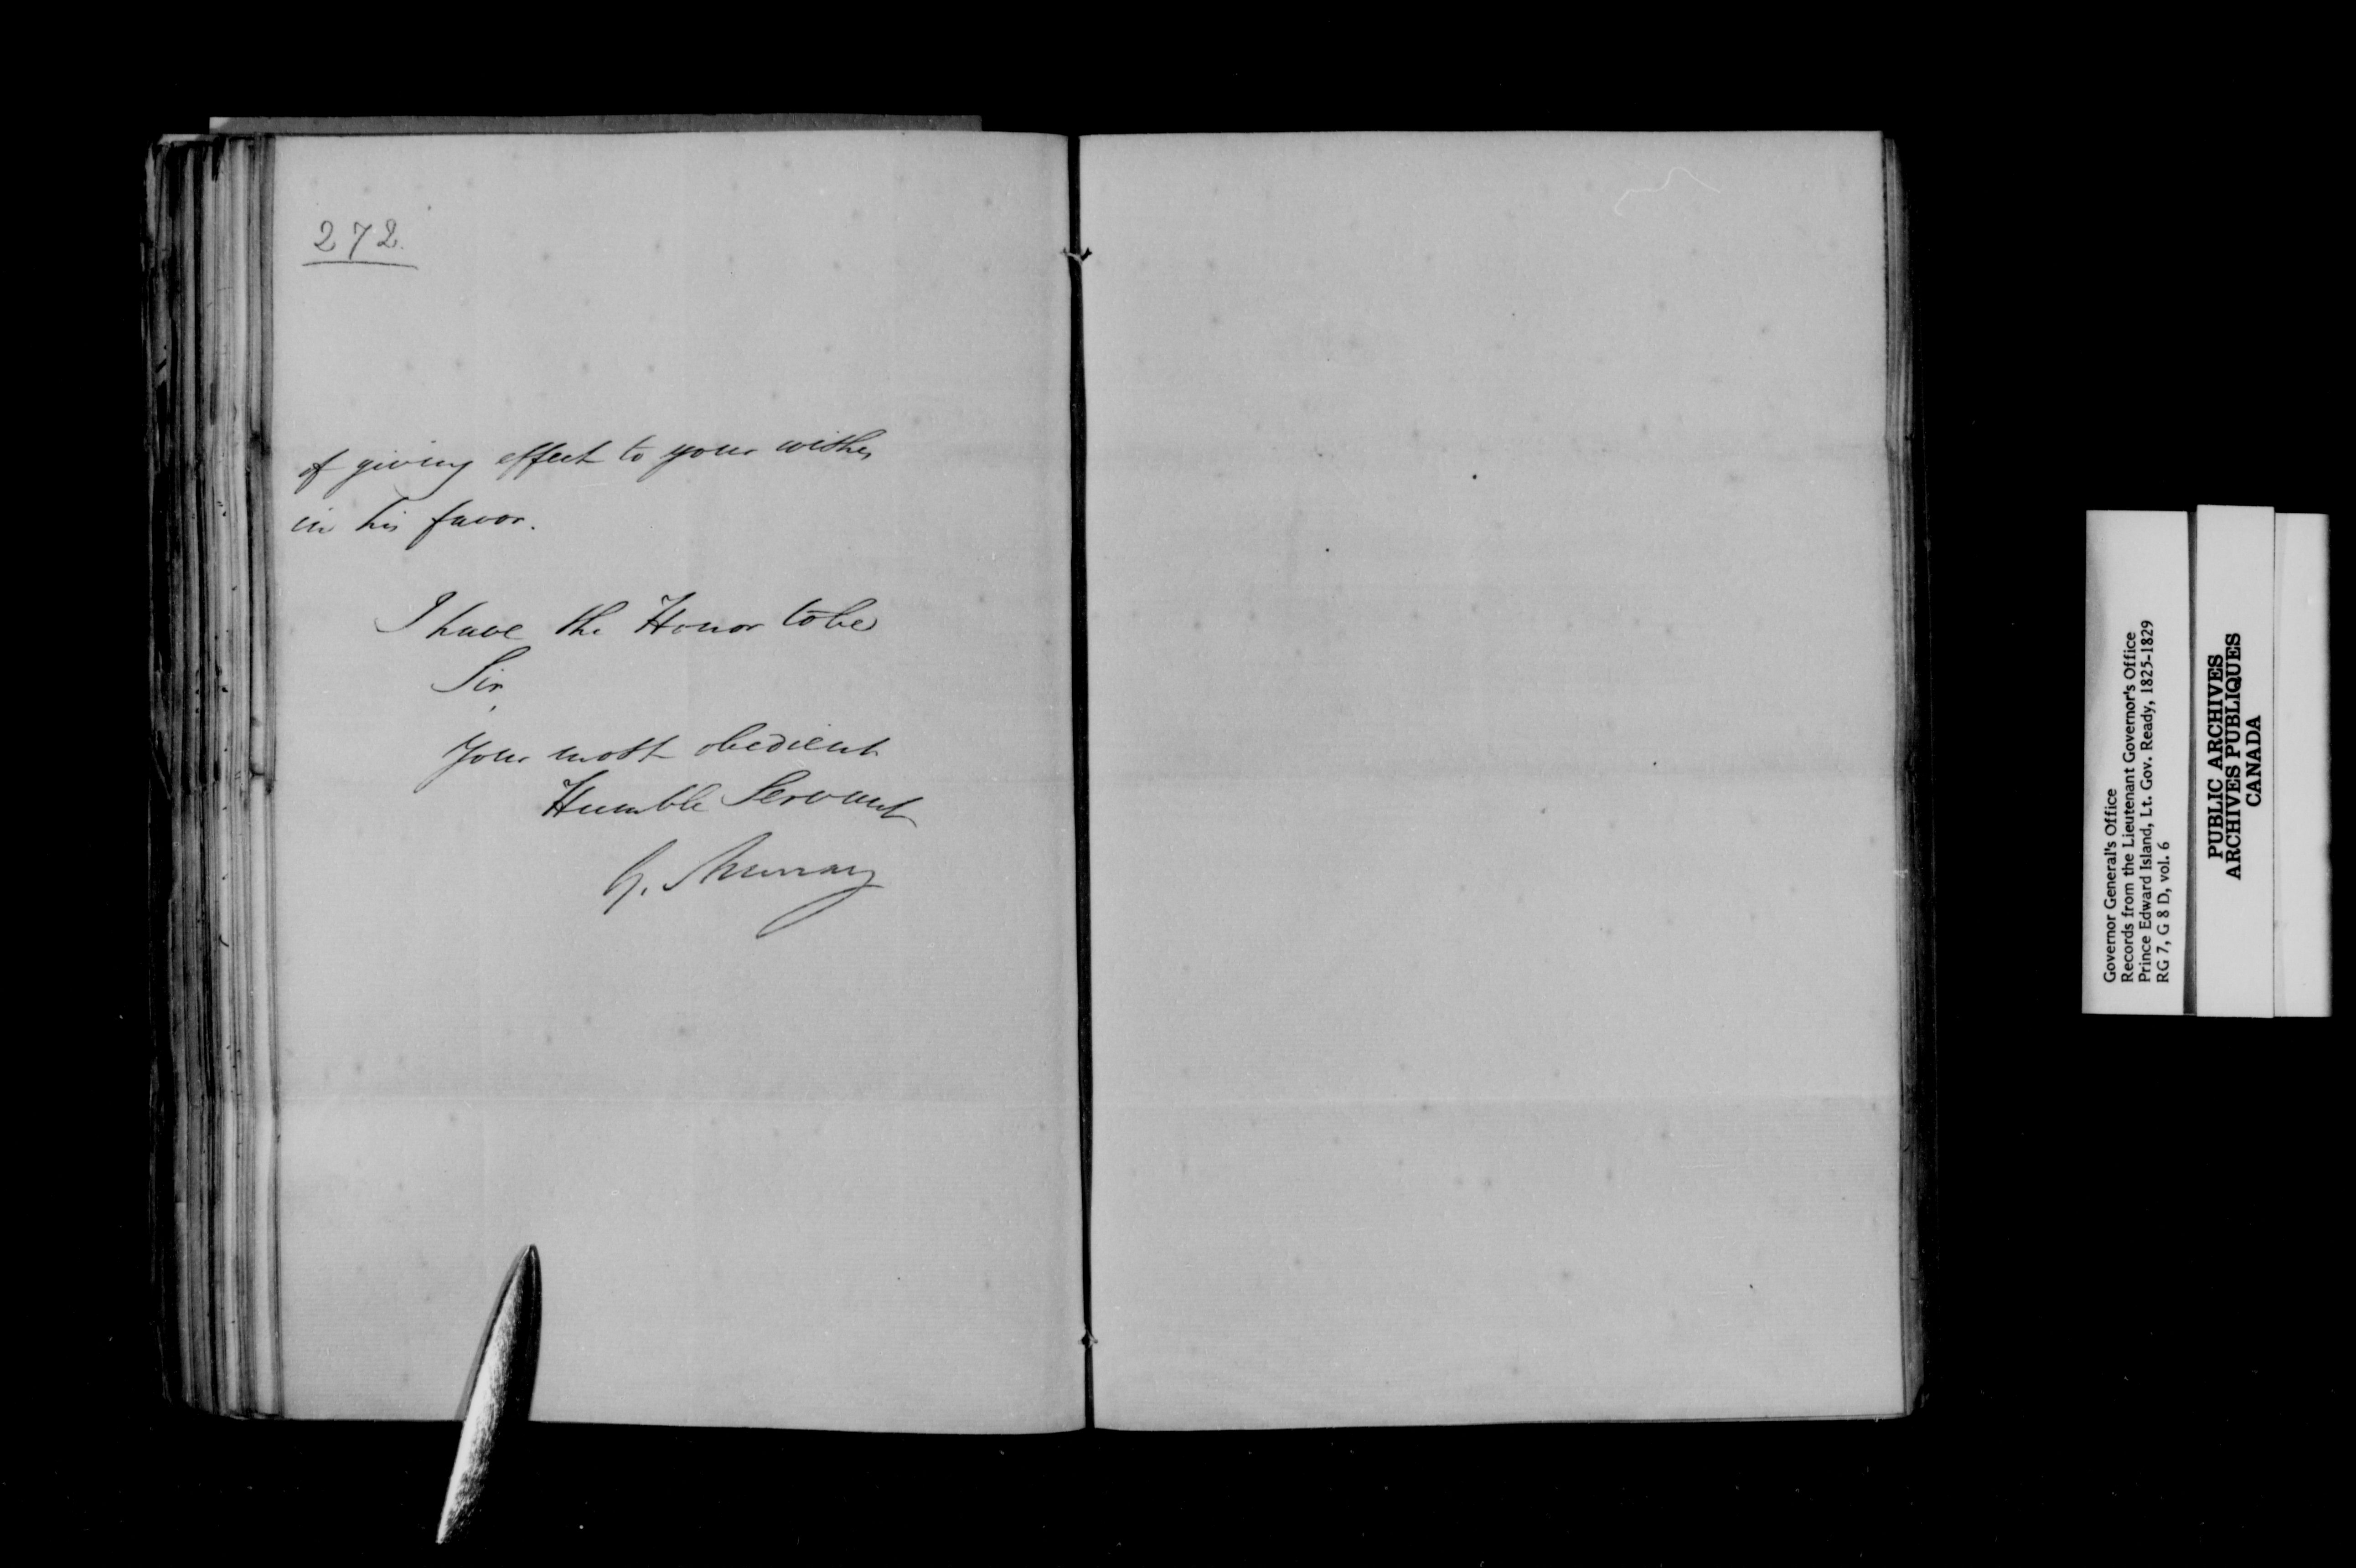 272.
of giving effect to your wishes
in his favor.
I have the Honor to be
Sir,
Your most obedient
Humble Servant
G. Murray
Governor General's Office
Records from the Lieutenant Governor's Office
Prince Edward Island, Lt. Gov. Ready, 1825-1829
RG 7, G 8 D, vol. 6
PUBLIC ARCHIVES
ARCHIVES PUBLIQUES
CANADA